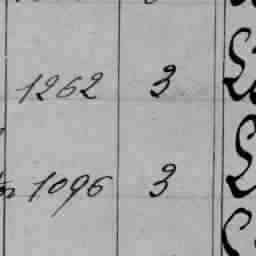 1262 3
1096 3